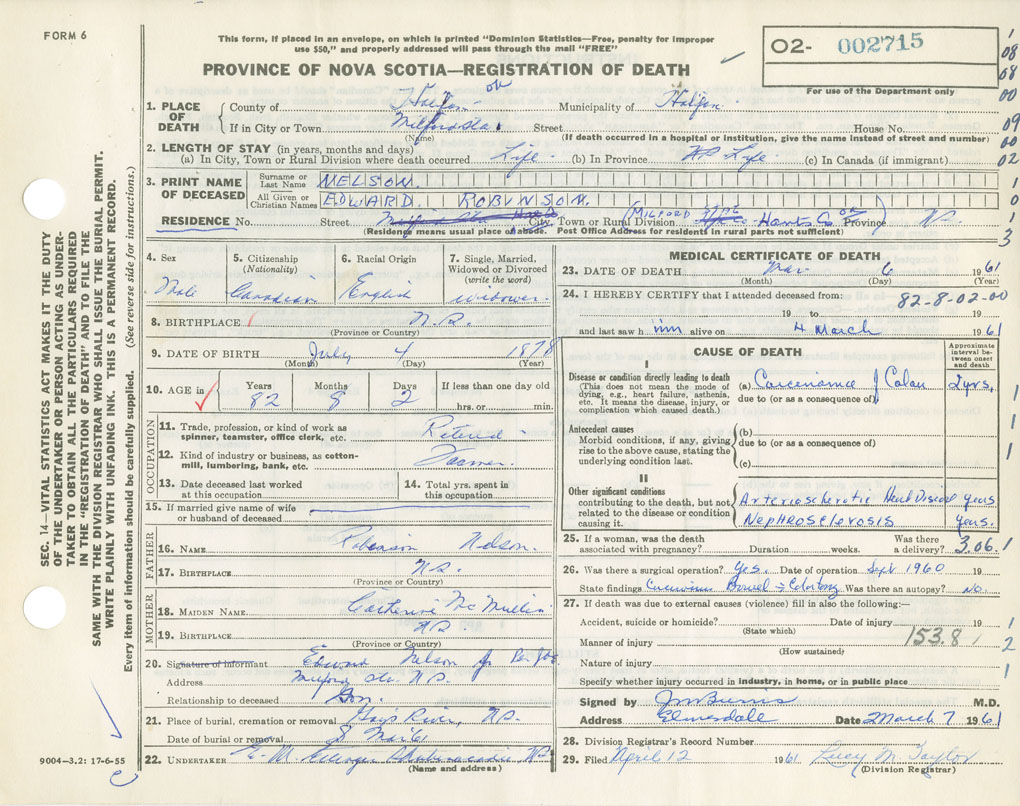 FORM 6
This form, if placed in an envelope, on which is printed "Dominion Statistics—Free, penalty for improper
use $50," and properly addressed will pass through the mail "FREE"
PROVINCE OF NOVA SCOTIA—REGISTRATION OF DEATH
O2- 002715
For use of the Department only
1. PLACE OF DEATH County of Halifax ok Municipality of Halifax
If in City or Town Milford Sta. Street House No.
(Name) (If death occurred in a hospital or institution, give the name instead of street and number)
2. LENGTH OF STAY (in years, months and days)
(a) In City, Town or Rural Division where death occurred Life (b) In Province Life (c) In Canada (if immigrant)
3. PRINT NAME OF DECEASED Surname or Last Name NELSON.
All Given or Christian Names EDWARD. ROBINSON.
RESIDENCE No. Street City, Town or Rural Division (MILFORD Hants Co ok) Province NS
(Residence means usual place of abode. Post Office Address for residents in rural parts not sufficient)
4. Sex Male
5. Citizenship (Nationality) Canadian
6. Racial Origin English
7. Single, Married, Widowed or Divorced (write the word) widower.
8. BIRTHPLACE N.S.
(Province or Country)
9. DATE OF BIRTH July 4 1878
(Month) (Day) (Year)
10. AGE in Years 82 Months 8 Days 2 If less than one day old
hrs. or min.
OCCUPATION
11. Trade, profession, or kind of work as spinner, teamster, office clerk, etc. Retired
12. Kind of industry or business, as cotton-mill, lumbering, bank, etc. Farmer.
13. Date deceased last worked at this occupation
14. Total yrs. spent in this occupation
15. If married give name of wife or husband of deceased
FATHER
16. NAME Robinson Nelson.
17. BIRTHPLACE N.S.
(Province or Country)
MOTHER
18. MAIDEN NAME Catherine McMullin
19. BIRTHPLACE N.S.
(Province or Country)
20. Signature of informant Edward Nelson Jr
Address Milford Sta. N.S.
Relationship to deceased Son.
21. Place of burial, cremation or removal Gays River, N.S.
Date of burial or removal 8 Mar 61
22. UNDERTAKER E. M. Shubenacadie N.S.
(Name and address)
MEDICAL CERTIFICATE OF DEATH
23. DATE OF DEATH Mar 6 1961
(Month) (Day) (Year)
24. I HEREBY CERTIFY that I attended deceased from: 82-8-02-00
19 to 19
and last saw him alive on 4 March 1961
CAUSE OF DEATH
Approximate interval between onset and death
I
Disease or condition directly leading to death
(This does not mean the mode of dying, e.g., heart failure, asthenia, etc. It means the disease, injury, or complication which caused death.)
(a) Carcinoma of Colon 2 yrs.
due to (or as a consequence of)
Antecedent causes
Morbid conditions, if any, giving rise to the above cause, stating the underlying condition last.
(b)
due to (or as a consequence of)
(c)
II
Other significant conditions contributing to the death, but not related to the disease or condition causing it.
Arteriosclerotic Heart Disease years
Nephrosclerosis years.
25. If a woman, was the death associated with pregnancy? Duration weeks. Was there a delivery? 3.06.1
26. Was there a surgical operation? Yes. Date of operation Sept 1960 19
State findings Carcinoma Bowel - Colostomy Was there an autopsy? No.
27. If death was due to external causes (violence) fill in also the following:—
Accident, suicide or homicide? Date of injury 19
(State which)
Manner of injury 153.8
(How sustained)
Nature of injury
Specify whether injury occurred in industry, in home, or in public place
Signed by M.D.
Address Elmsdale Date March 7 1961
28. Division Registrar's Record Number
29. Filed April 12 1961 Lucy M. Taylor
(Division Registrar)
SEC. 14—VITAL STATISTICS ACT MAKES IT THE DUTY
OF THE UNDERTAKER OR PERSON ACTING AS UNDER-
TAKER TO OBTAIN ALL THE PARTICULARS REQUIRED
IN THE "REGISTRATION OF DEATH" AND TO FILE THE
SAME WITH THE DIVISION REGISTRAR WHO SHALL ISSUE THE BURIAL PERMIT.
WRITE PLAINLY WITH UNFADING INK. THIS IS A PERMANENT RECORD.
Every item of information should be carefully supplied. (See reverse side for instructions.)
9004—3.2: 17-6-55
1
08
08
00
09
00
02
1
0
1
3
1
1
1
1
2
1